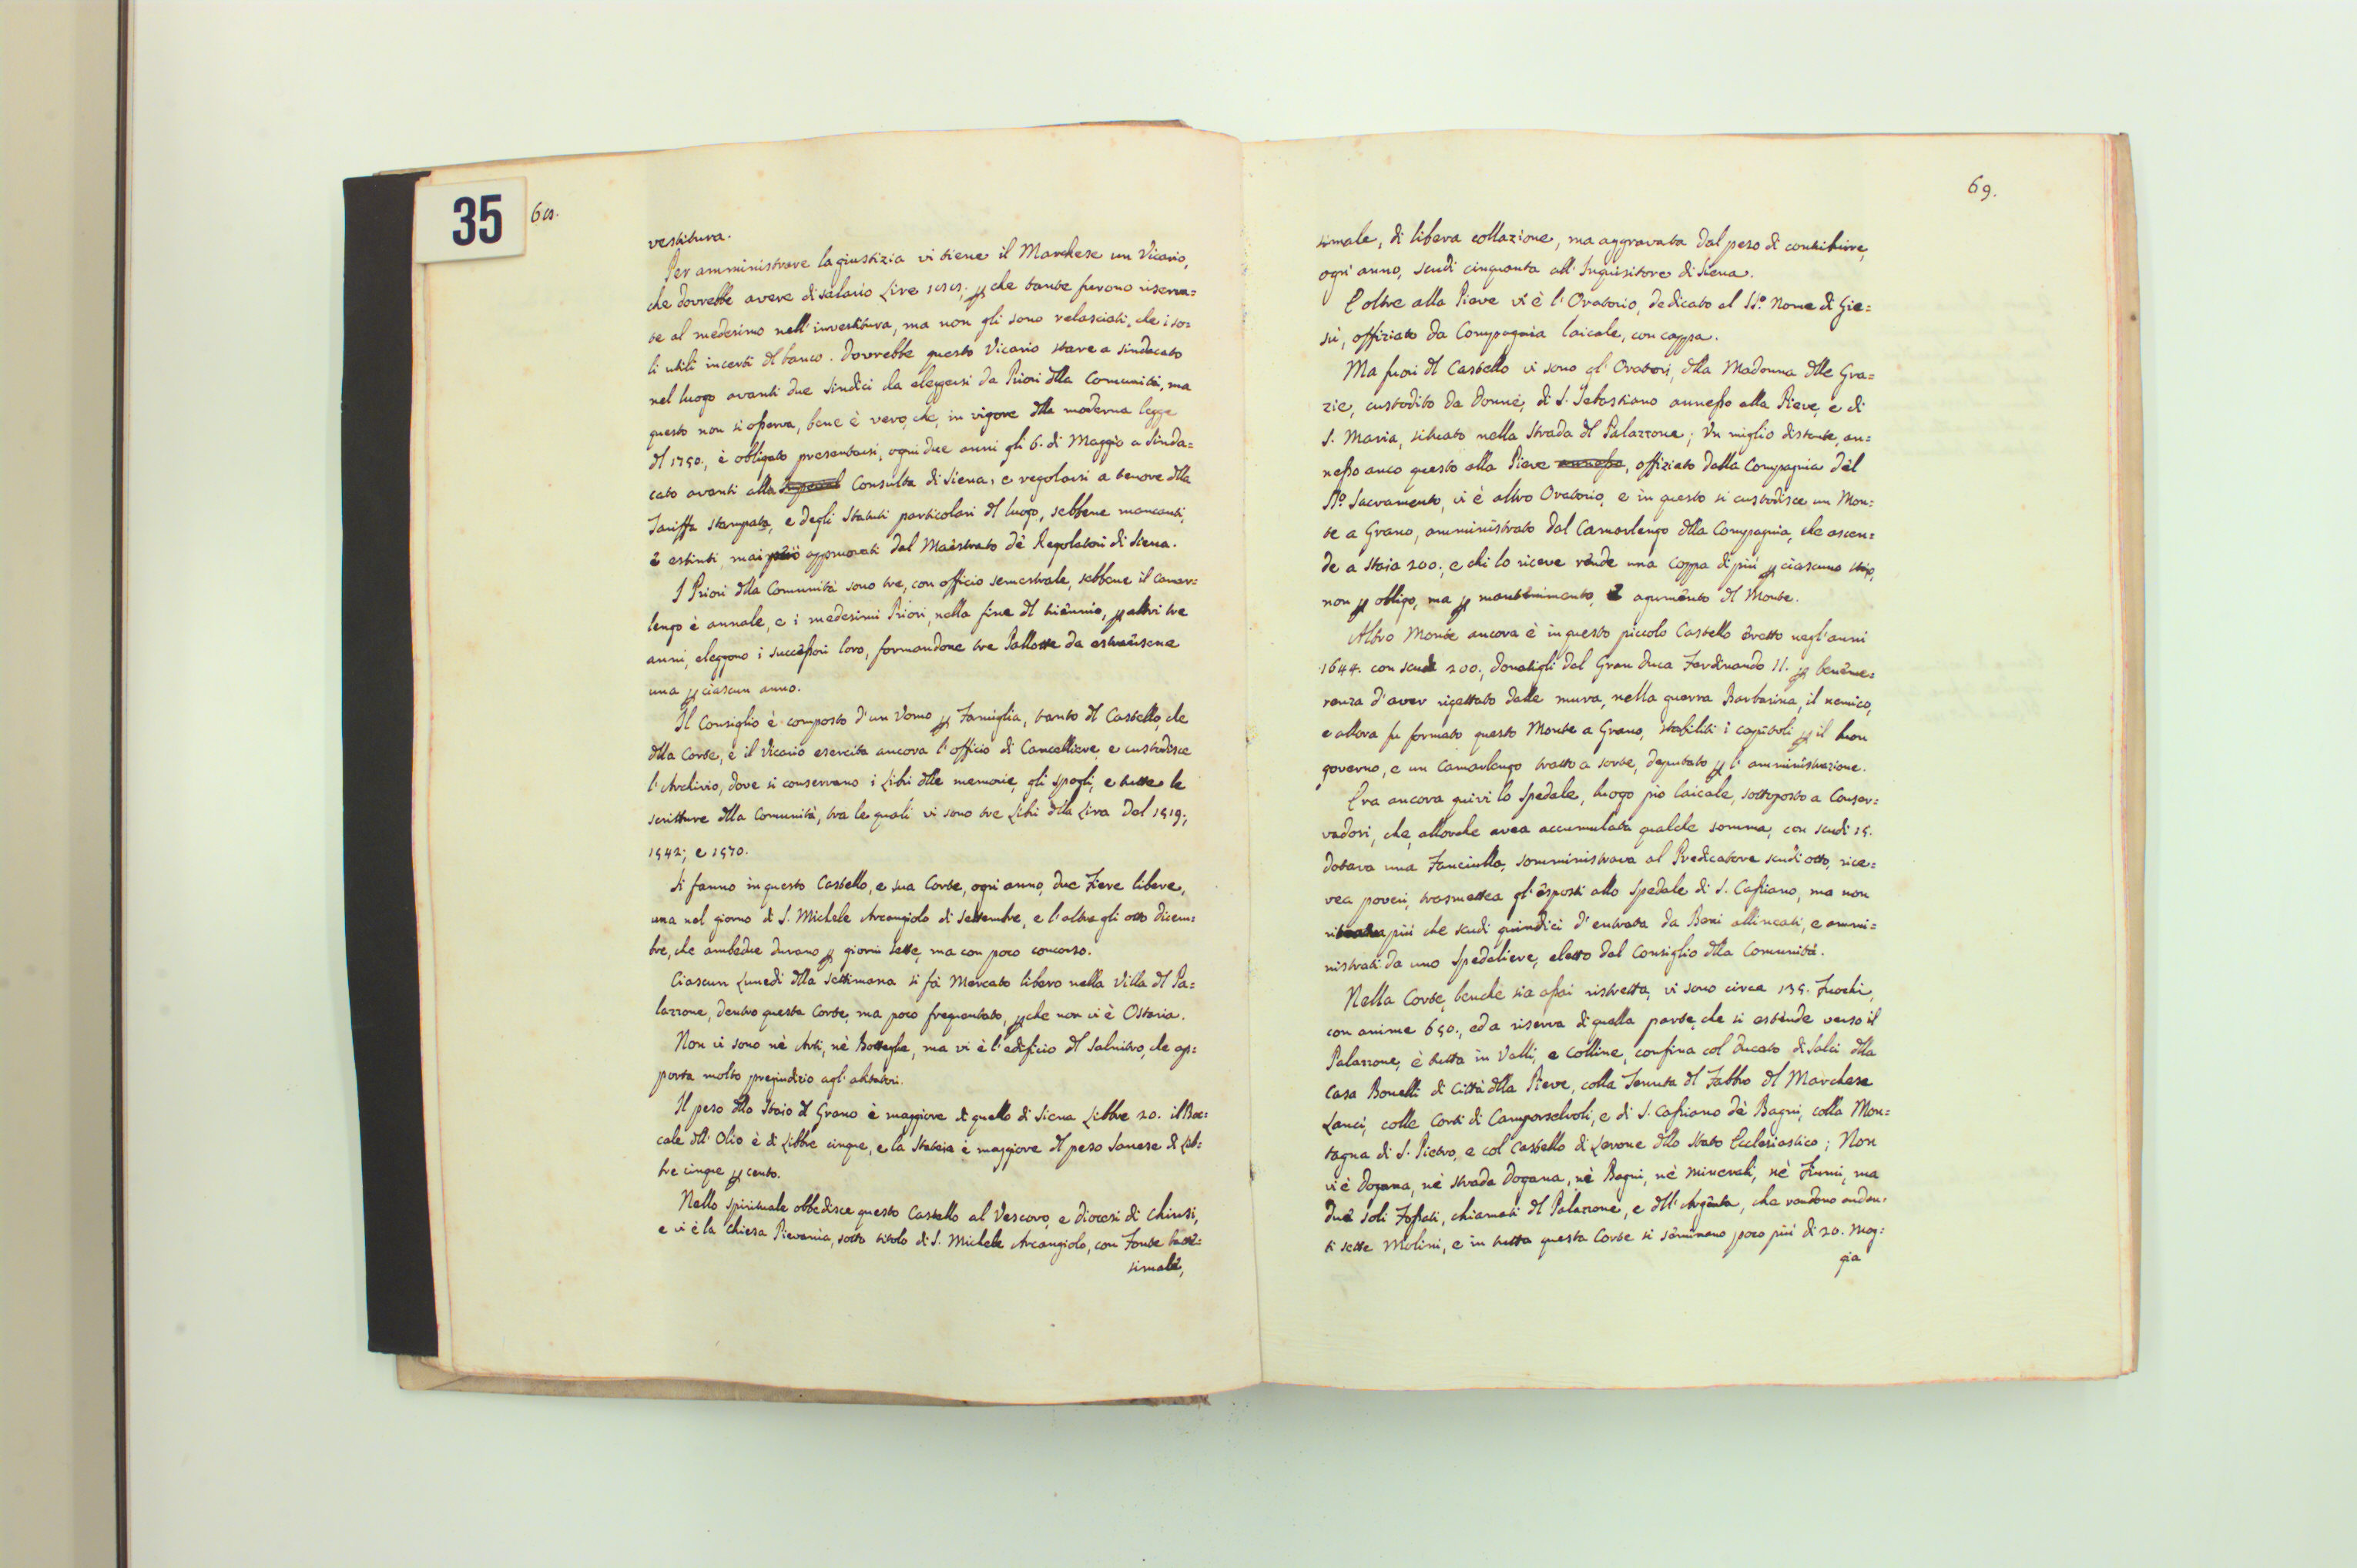 35
68.
vestitura.
Per amministrare la giustizia vi tiene il Marchese un Vicario,
che dovrebbe avere di salario Lire 1818; p che tante furono riserva=
te al medesimo nell'investitura, ma non gli sono relasciati, che i so=
li utili incerti dl banco. Dovrebbe questo Vicario stare a sindacato
nel luogo avanti due Sindici da eleggersi da Priori dlla Comunità, ma
questo non si osserva, bene è vero, che, in vigore dlla moderna legge
dl 1750., è obligato presentarsi, ogni due anni gli 6. di Maggio a Sinda=
cato avanti alla Consulta di Siena, e regolarsi a tenore dlla
Tariffa stampata, e degli Statuti particolari dl luogo, sebbene mancanti,
è estinti, mai più approvati dal Maestrato dè Regolatori di Siena.
I Priori dlla Comunità sono tre, con officio semestrale, sebbene il Camar=
lengo è annale, e i medesimi Priori, nella fine dl triennio, p altri tre
anni, eleggono i successori loro, formandone tre Pallotte da estraersene
una p ciascun anno.
Il Consiglio è composto d'un Uomo p Famiglia, tanto dl Castello, che
dlla Corte, e il Vicario esercita ancora l'officio di Cancelliere, e custodisce
l'Archivio, dove si conservano i Libri dlle memorie, gli spogli, e tutte le
scritture dlla Comunità, tra le quali vi sono tre Libri dlla Lira del 1519;
1542; e 1570.
Si fanno in questo Castello, e sua Corte, ogni anno, due Fiere libere,
una nel giorno di S. Michele Arcangiolo di Settembre, e l'altra gli otto Dicem=
bre, che ambedue durano p giorni sette, ma con poco concorso.
Ciascun Lunedì dlla Settimana si fà Mercato libero nella Villa dl Pa=
lazzone, dentro questa Corte, ma poco frequentato, p che non vi è Osteria.
Non vi sono nè Arti, nè Botteghe, ma vi è l'edificio dl Salnitro, che ap=
porta molto pregiudizio agl'abitatori.
Il peso dllo Staio dl Grano è maggiore di quello di Siena Libbre 20. il Boc=
cale dll'Olio è di Libbre cinque, e la Stateia è maggiore dl peso Sanese di Lib=
bre cinque p cento.
Nello spirituale obbedisce questo Castello al Vescovo, e diocesi di Chiusi,
e vi è la Chiesa Pievania, sotto titolo di S. Michele Arcangiolo, con Fonte batte=
simale,
69.
simale, di libera collazione, ma aggravata dal peso di contribuire,
ogni anno, scudi cinquanta all'Inquisitore di Siena.
E oltre alla Pieve vi è l'Oratorio, dedicato al SS.º Nome di Gie=
sù, offiziato da Compagnia laicale, con cappa.
Ma fuori dl Castello vi sono gl'Oratorj, dlla Madonna dlle Gra=
zie, custodito da Donne; di S. Sebastiano annesso alla Pieve, e di
S. Maria, situato nella Strada dl Palazzone; Un miglio distante, an=
nesso anco questo alla Pieve annesso, offiziato dalla Compagnia dèl
SS.º Sacramento, vi è altro Oratorio, e in questo si custodisce un Mon=
te a Grano, amministrato dal Camarlengo dlla Compagnia, che ascen=
de a Staia 200.; e chi lo riceve rende una Coppa di più p ciascuno staio,
non p obligo, ma p mantenimento, e agumento dl Monte.
Altro Monte ancora è in questo piccolo Castello eretto negl'anni
1644. con scudi 200.; donatigli dal Gran Duca Ferdinando II. p beneme=
renza d'aver rigettato dalle mura, nella guerra Barbarina, il nemico,
e allora fu formato questo Monte a Grano, stabiliti i capitoli p il buon
governo, e un Camarlengo tratto a sorte, deputato p l'amministrazione.
Era ancora quivi lo Spedale, luogo pio laicale, sottoposto a Conser=
vadori, che, allorche avea accumulata qualche somma, con scudi 15.
dotava una Fanciulla, somministrava al Predicatore scudi otto, rice=
vea poveri, trasmettea gl'esposti allo Spedale di S. Cassiano, ma non
ritraea più che scudi quindici d'entrata da Beni allineati, e ammi=
nistrati da uno Spedaliere, eletto dal Consiglio dlla Comunità.
Nella Corte, benche sia assai ristretta, vi sono circa 135. Fuochi,
con anime 650., ed a riserva di quella parte, che si estende verso il
Palazzone, è tutta in Valli, e Colline, confina col Ducato di Salci dlla
Casa Bonelli di Città dlla Pieve, colla Tenuta dl Fabbro dl Marchese
Lanci, colle Corti di Camporselvoli, e di S. Cassiano dè Bagni, colla Mon=
tagna di S. Pietro, e col Castello di Savone dllo Stato Ecclesiastico; Non
vi è Dogana, nè strada Dogana, nè Bagni, nè minerali, nè Fiumi, ma
due soli Fossati, chiamati dl Palazzone, e dll'Argenta, che rendono andan=
ti sette Molini, e in tutta questa Corte si seminano poco più di 20. Mog=
gia